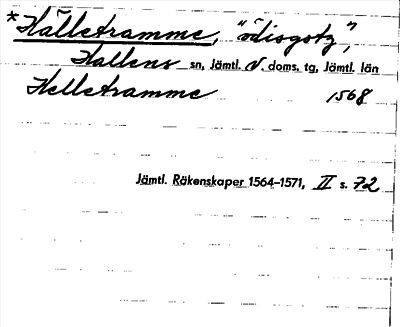 *Hålletramme, "ödisgotz",
Hallens sn, Jämtl. V. doms. tg, Jämtl. län
Helletramme 1568
Jämtl. Räkenskaper 1564-1571, II s. 72